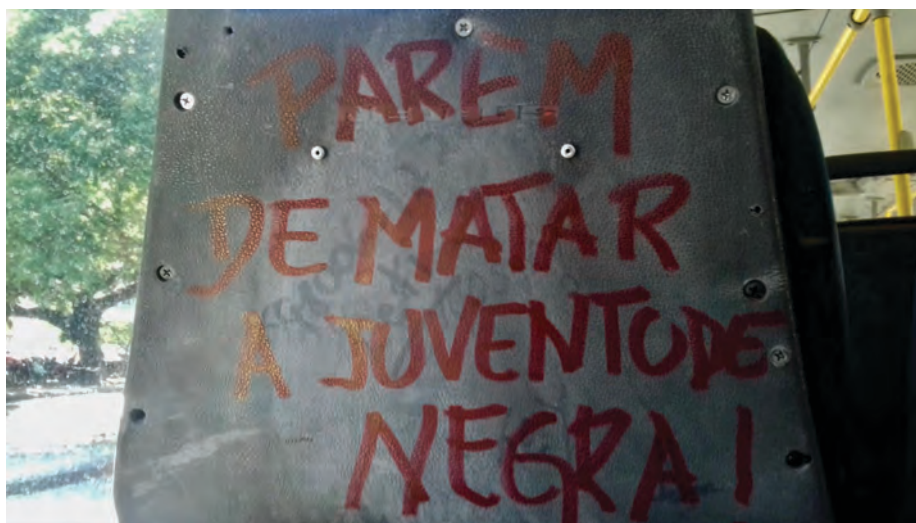 PAREM
DE MATAR
A JUVENTUDE
NEGRA!